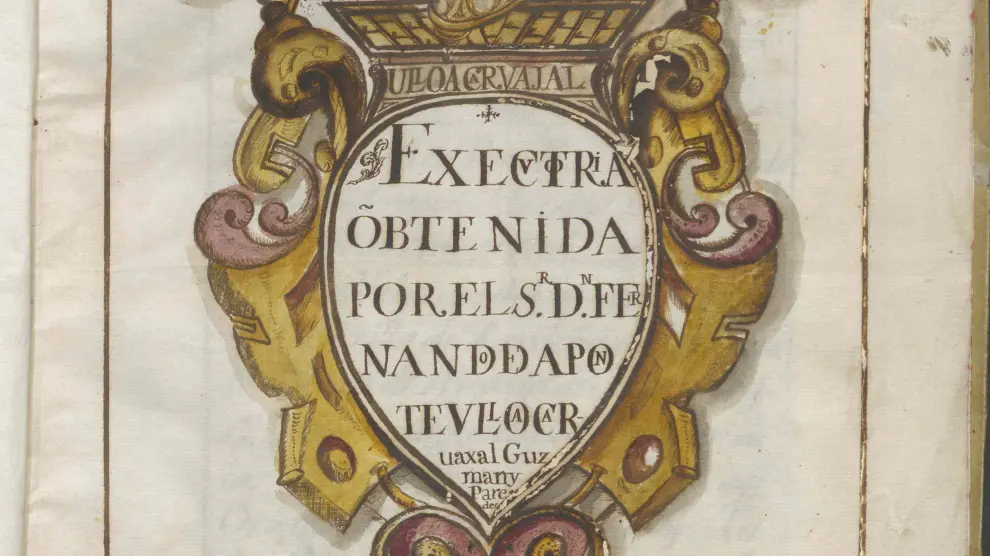 ULLOACARVAJAL
EXECVTORIA
ÕBTENIDA
POR EL S.R D.N FER
NANDO DE DA PON
TE VLLOA CAR-
uaxal Guz
man y
Pare
des